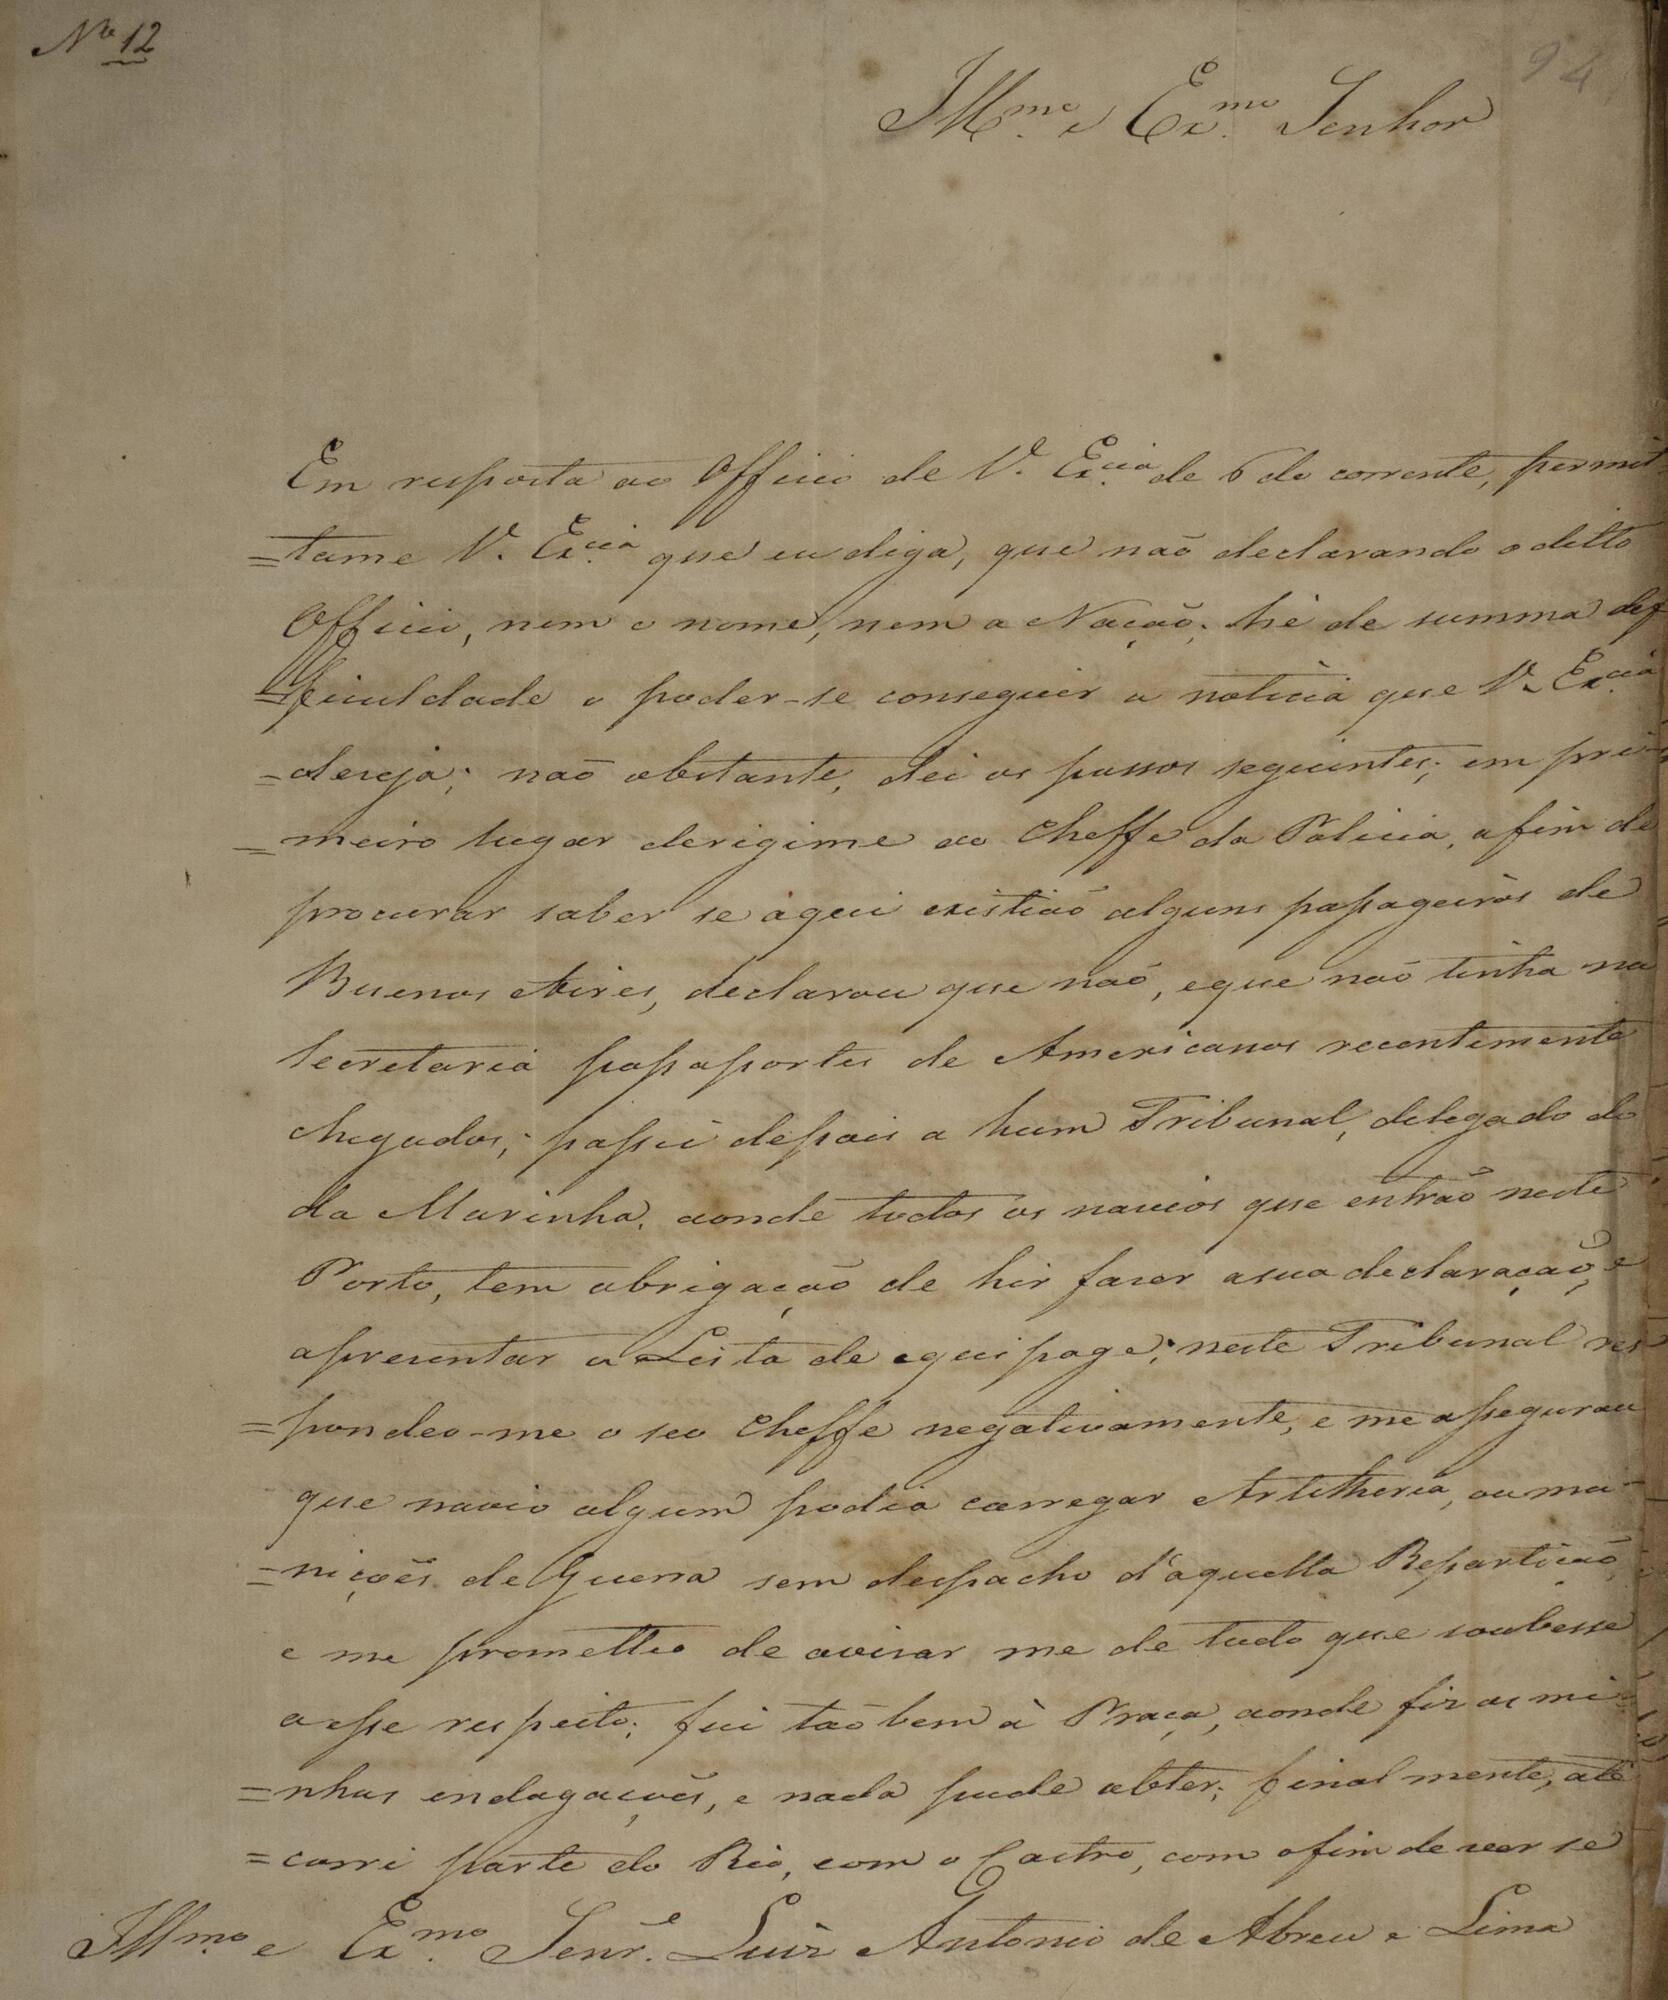 Nº 12
94
Illmo. e Exmo. Senhor
Em resposta ao Officio de V. Excia. de 6 do corrente, permit
=tame V. Excia. que eu diga, que naõ declarando o ditto
Officio, nem o nome, nem a Naçaõ; hé de summa def
=ficuldade o poder-se conseguir a noticia que V. Excia.
=deseja; naõ obstante, dei os passos seguintes; em pri-
=meiro lugar derigime ao Cheffe da Policia, afim de
procurar saber se aqui existiaõ alguns passageiros de
Buenos Aires, declarou que naõ, e que naõ tinha na
Secretaria passaportes de Americanos recentemente
chegados; passei depois a hum Tribunal, delegado do
da Marinha, aonde todos os navios que entraõ neste
Porto, tem obrigaçaõ de hir fazer a sua declaraçaõ, e
apresentar a Lista de equipage; neste Tribunal res
=pondeo-me o seo Cheffe negativamente, e me assegurou
que navio algum podia carregar Artilheria, ou mu-
=niçoẽs de Guerra sem despacho d'aquella Repartiçaõ,
e me prometteo de avisar me de tudo que soubesse
a esse respeito; fui taõ bem à Praça, aonde fiz as mi-
=nhas endagaçoẽs, e nada pude obter; finalmente, até
=corri parte do Rio, com o Castro, com o fim de ver se
Illmo. e Exmo. Senr.e Luiz Antonio de Abreu e Lima